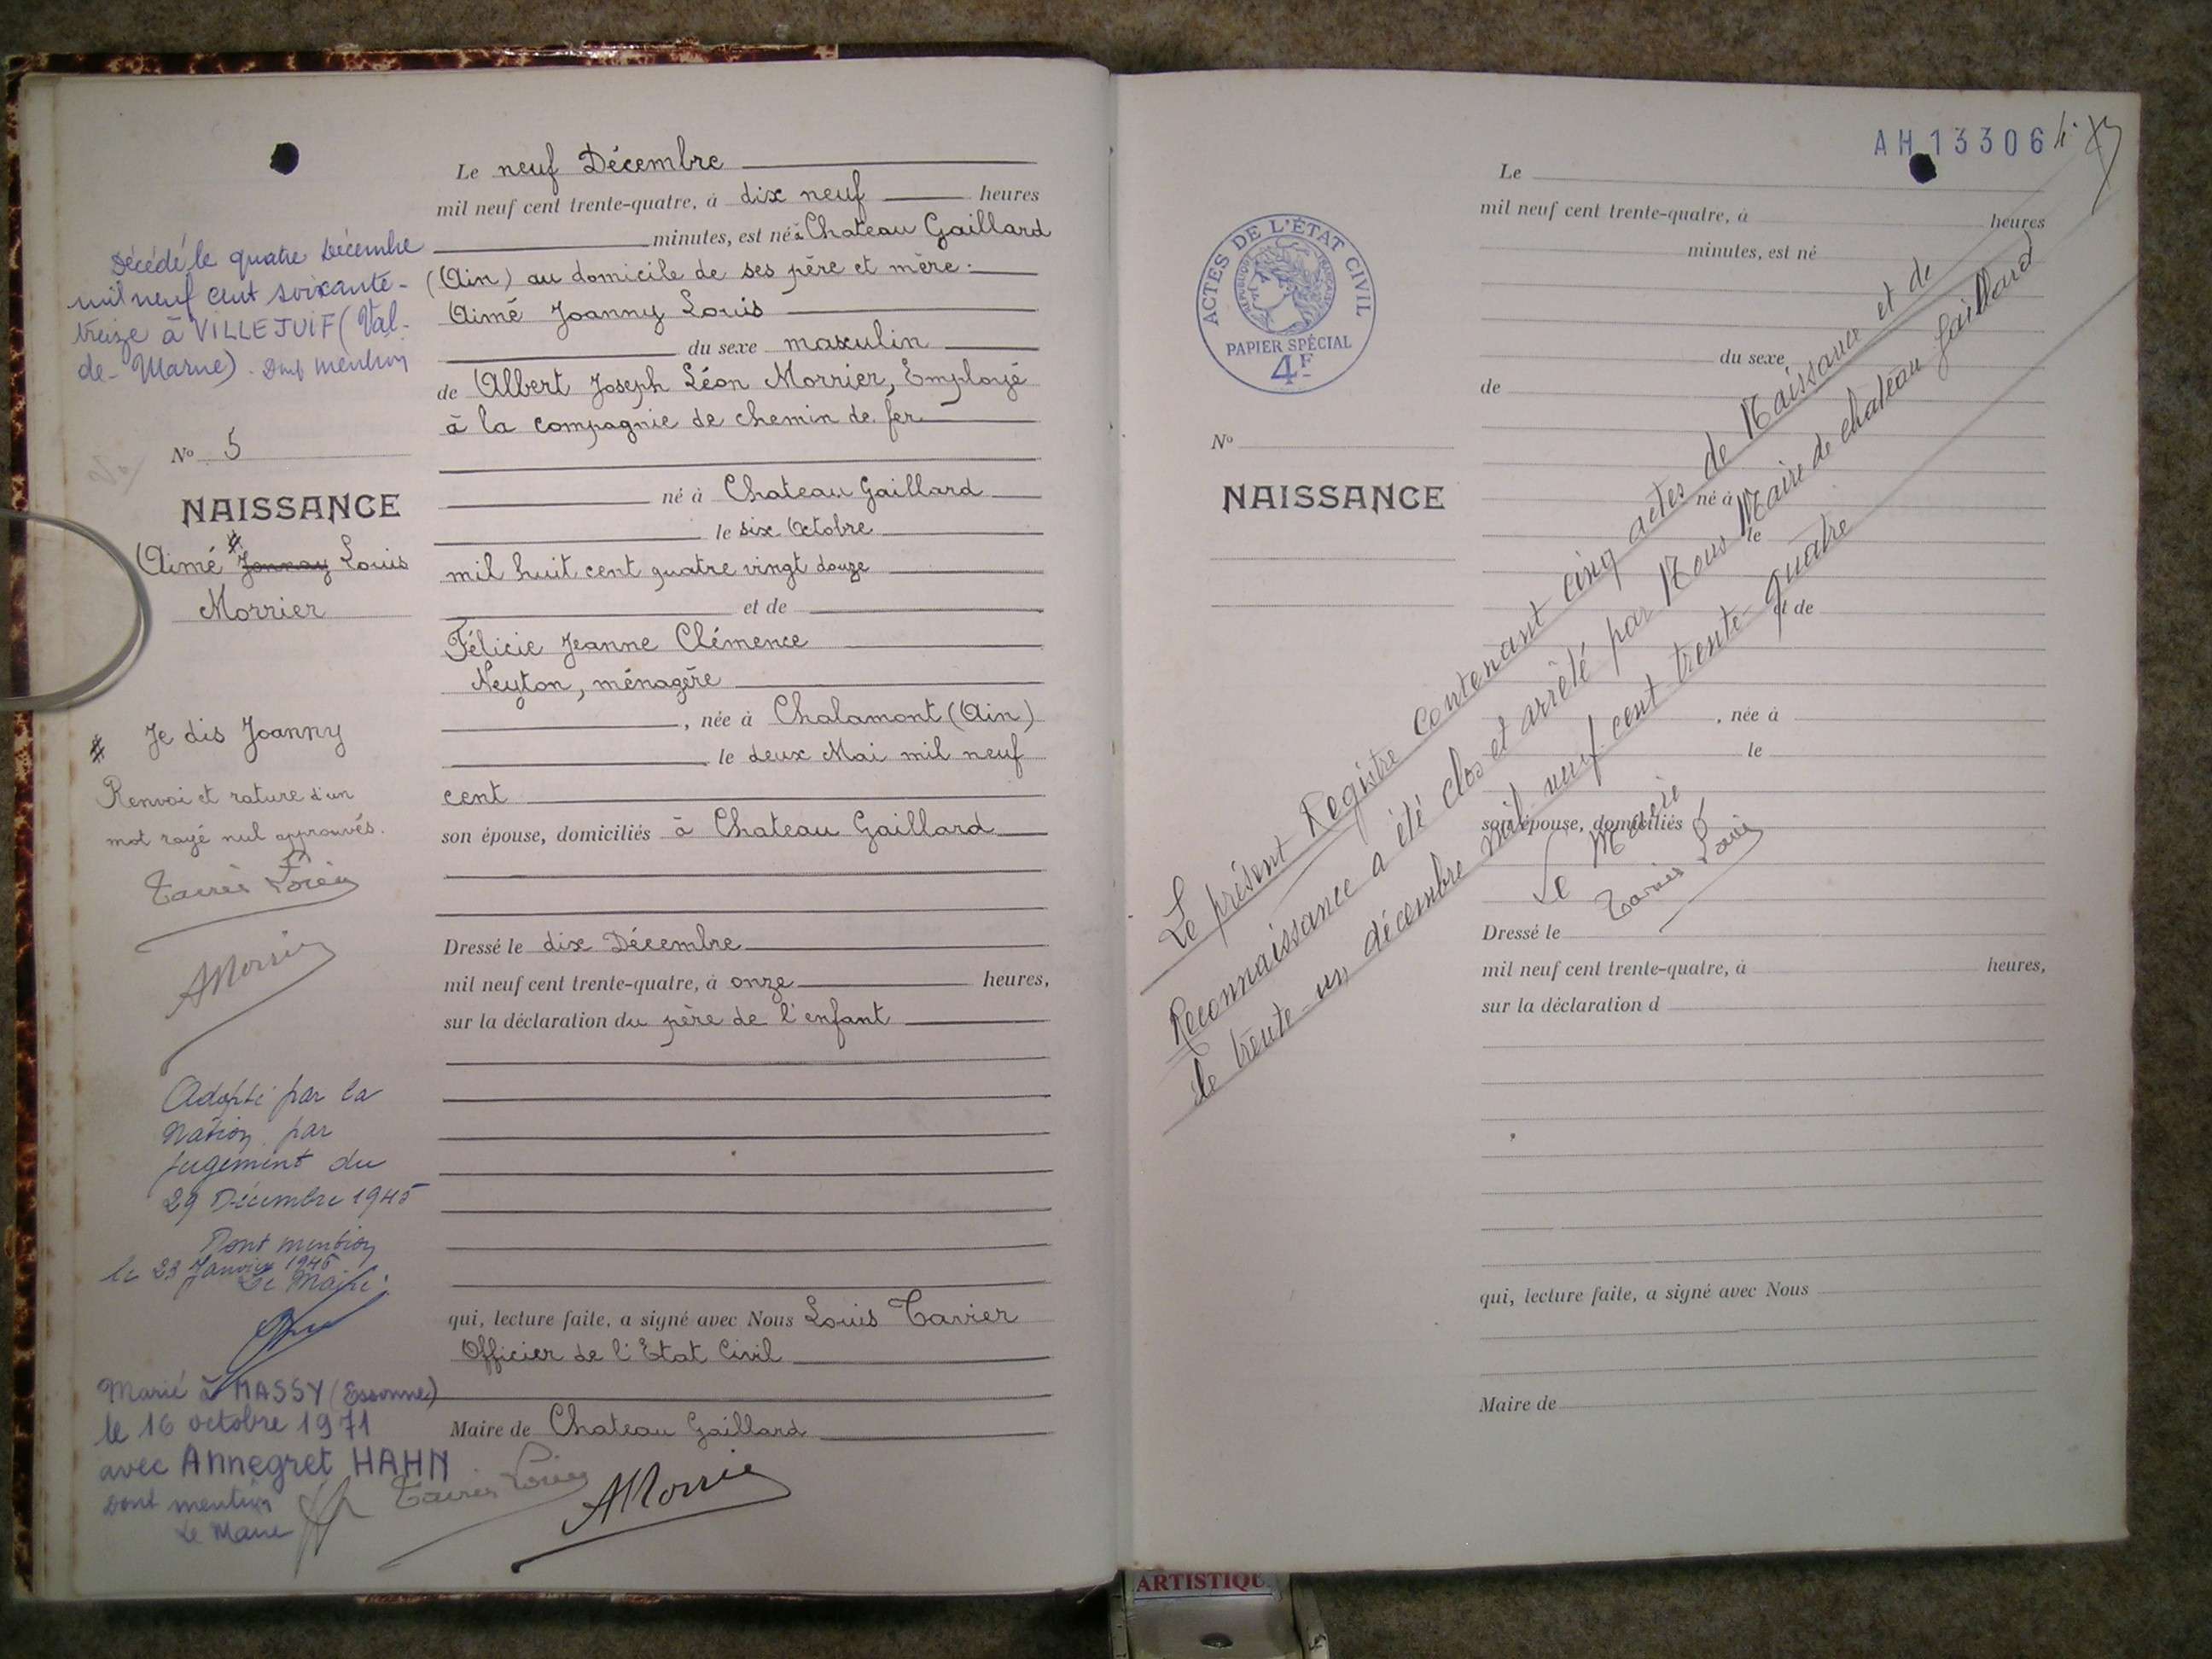 Décédé le quatre Décembre
mil neuf cent soixante-
treize à VILLEJUIF (Val-
de-Marne). Dont mention
No 5
NAISSANCE
Aimé # Jonnay Louis
Morrier
# Je dis Joanny
Renvoi et rature d'un
mot rayé nul approuvés.
Adopté par la
Nation par
jugement du
29 Décembre 1945
Dont mention
le 23 Janvier 1946
Le Maire:
Marié à MASSY (Essonne)
le 16 octobre 1971
avec Annegret HAHN
Dont mention
Le Maire
Le neuf Décembre
mil neuf cent trente-quatre, à dix neuf heures
minutes, est né à Chateau Gaillard
(Ain) au domicile de ses père et mère.
Aimé Joanny Louis
du sexe masculin
de Albert Joseph Léon Morrier, Employé
à la compagnie de chemin de fer
né à Chateau Gaillard
le six Octobre
mil huit cent quatre vingt douze
et de
Félicie Jeanne Clémence
Neyton, ménagère
, née à Chalamont (Ain)
le deux Mai mil neuf
cent
son épouse, domiciliés à Chateau Gaillard
Dressé le dix Décembre
mil neuf cent trente-quatre, à onze heures,
sur la déclaration du père de l'enfant
qui, lecture faite, a signé avec Nous Louis Tavier
Officier de l'Etat Civil
Maire de Chateau Gaillard
AMorrier
AH 13306
ACTES DE L'ÉTAT CIVIL
RÉPUBLIQUE FRANÇAISE
PAPIER SPÉCIAL
4F
No
NAISSANCE
Le
mil neuf cent trente-quatre, à heures
minutes, est né
du sexe
de
né à
le
et de
, née à
le
son épouse, domiciliés
Dressé le
mil neuf cent trente-quatre, à heures,
sur la déclaration d
qui, lecture faite, a signé avec Nous
Maire de
Le présent Registre contenant cinq actes de Naissance et de
Reconnaissance a été clos et arrêté par Nous Maire de chateau Gaillard
le trente-un décembre mil neuf cent trente quatre
Le Maire
ARTISTIQU